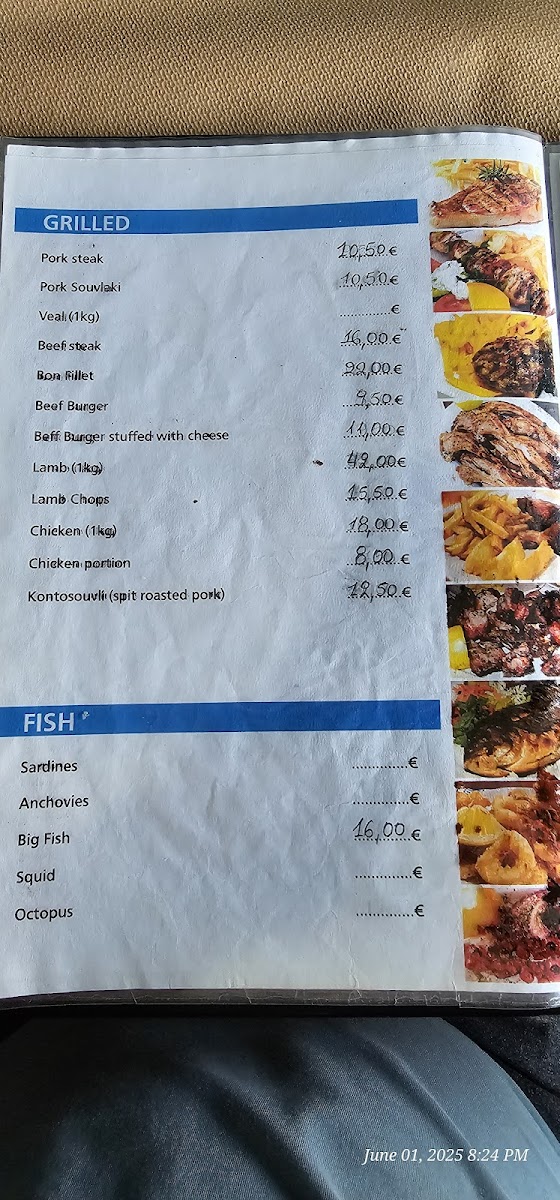 GRILLED
Pork steak 10,50 €
Pork Souvlaki 10,50 €
Veal (1kg) ............. €
Beef steak 16,00 €
Bon Fillet 22,00 €
Beef Burger 9,50 €
Beff Burger stuffed with cheese 11,00 €
Lamb (1kg) 42,00 €
Lamb Chops 15,50 €
Chicken (1kg) 18,00 €
Chicken portion 8,00 €
Kontosouvli (spit roasted pork) 12,50 €
FISH
Sardines ............. €
Anchovies ............. €
Big Fish 16,00 €
Squid ............. €
Octopus ............. €
June 01, 2025 8:24 PM